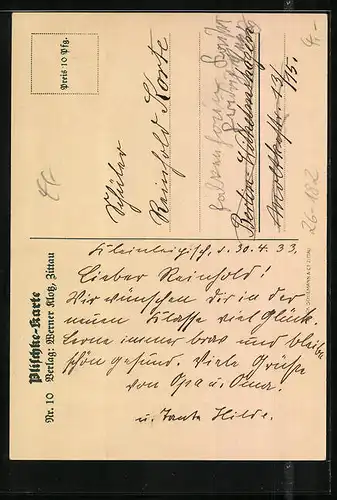 Kleinleipisch, d. 30.4.33.
Lieber Reinhold!
Wir wünschen dir in der
neuen Klasse viel Glück.
Lerne immer brav und bleibe
schön gesund. Viele Grüße
von Opa u. Oma.
u. Tante Hilde.
Plischke-Karte
Nr. 10 Verlag: Werner Klotz, Zittau
Preis 10 Pfg.
Schüler
Reinhold Korte
Berlin
26-182
4,-